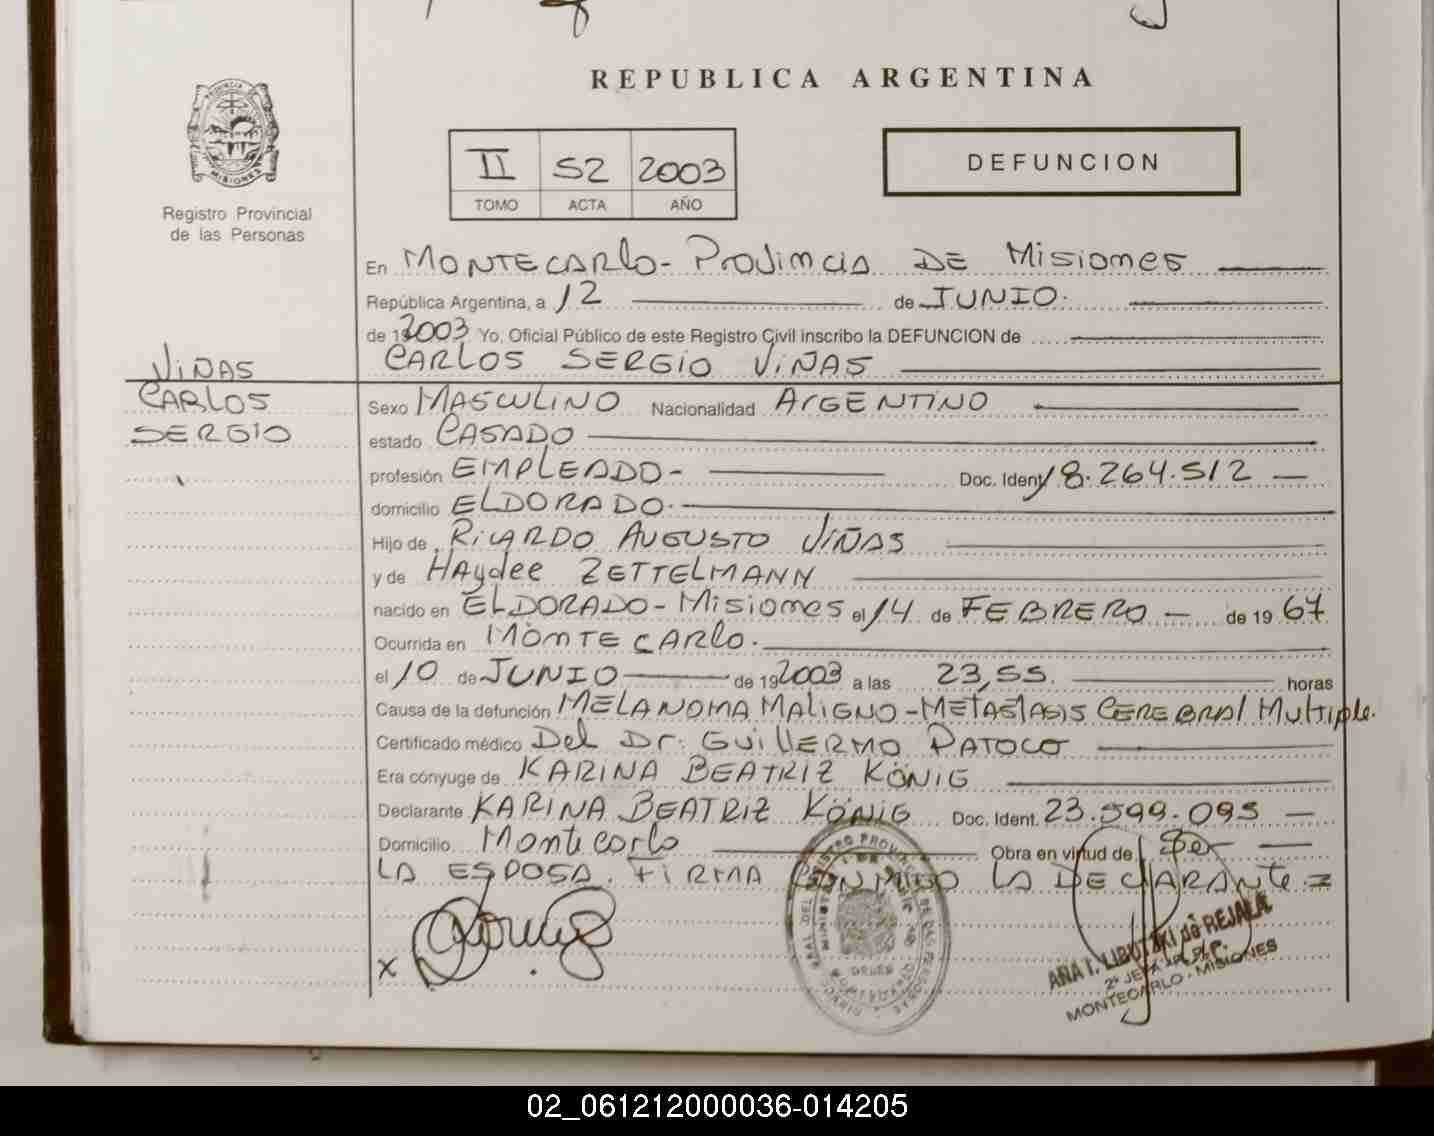 REPUBLICA ARGENTINA
PROVINCIA DE
MISIONES
Registro Provincial
de las Personas
II 52 2003
TOMO ACTA AÑO
DEFUNCION
En MONTECARLO - Provincia DE Misiones
República Argentina, a 12 de JUNIO.
de 192003 Yo, Oficial Público de este Registro Civil inscribo la DEFUNCION de
CARLOS SERGIO VIÑAS
VIÑAS
CARLOS
SERGIO
Sexo MASCULINO Nacionalidad ArGENTINO
estado CASADO
profesión EMPLEADO- Doc. Ident. 18.264.512
domicilio ELDORADO.
Hijo de RICARDO AUGUSTO VIÑAS
y de HAydee ZETTELMANN
nacido en ELDORADO - Misiones el 14 de FEBRERO de 19 67
Ocurrida en MONTECARLO.
el 10 de JUNIO de 192003 a las 23,55. horas
Causa de la defunción MELANOMA MALIGNO - METASTASIS CEREBRAl MULTIPLE.
Certificado médico Del Dr. GUILLERMO PATOCO
Era cónyuge de KARINA BEATRIZ KÖNIG
Declarante KARINA BEATRIZ KÖNIG Doc. Ident. 23.599.095
Domicilio Montecarlo Obra en virtud de Ser
LA ESPOSA. FIRMA CONMIGO LA DECLARANTE =
X
ANA I. LIBUTZKI de REJALA
MONTECARLO - MISIONES
02_061212000036-014205